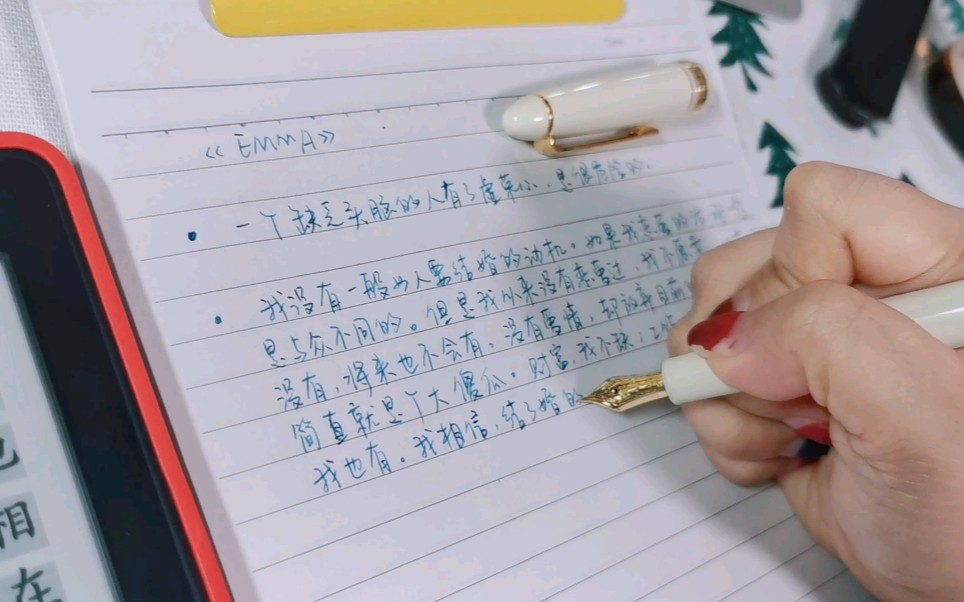 《EMMA》
一个缺乏头脑的人有了虚荣心,是很危险的。
我没有一般女人要结婚的动机。如果我恋爱
是与众不同的。但是我从来没有恋爱过,我不愿意
没有,将来也不会有。没有爱情,却放弃目前
简直就是个大傻瓜。财富,我不缺;工作
我也有。我相信,结了婚的
相
在